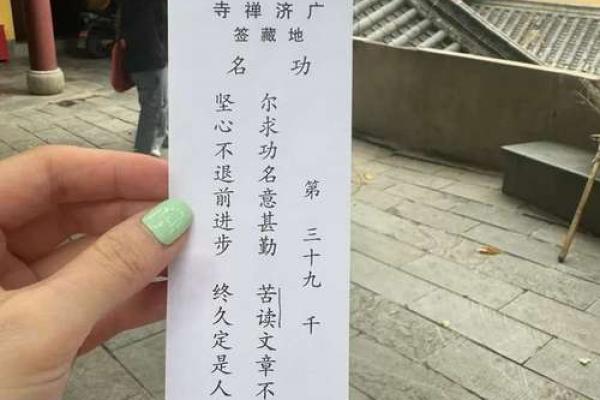 广济禅寺
地藏签
功名
第三十九千
尔求功名意甚勤 苦读文章不
坚心不退前进步 终久定是人